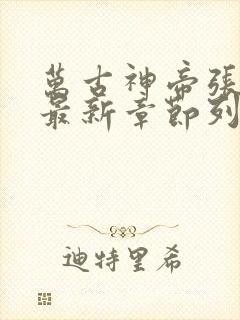 萬古神帝張
最新章節列
迪特里希